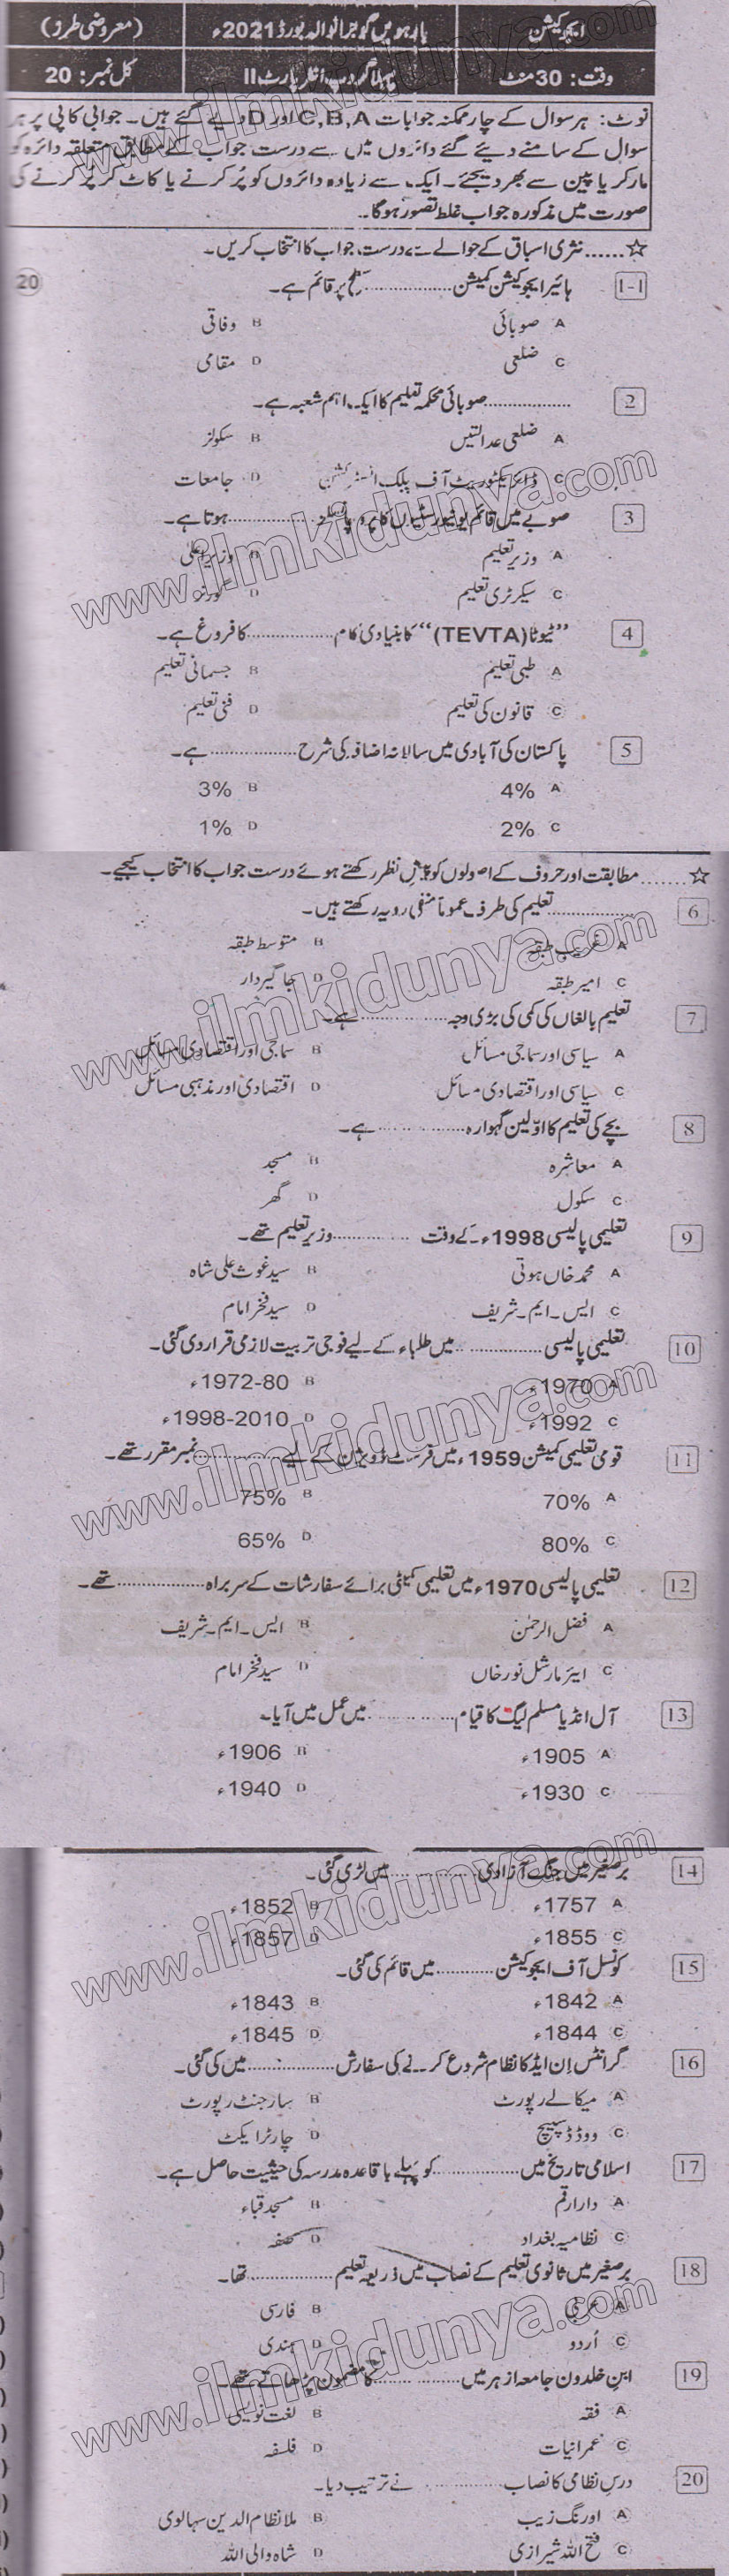 ایجوکیشن
بارہویں گوجرانوالہ بورڈ 2021ء
(معروضی طرز)
وقت: 30 منٹ
پہلا گروپ انٹر پارٹ II
کل نمبر: 20
نوٹ: ہر سوال کے چار ممکنہ جوابات C,B,A اور D دیے گئے ہیں۔ جوابی کاپی پر ہر
سوال کے سامنے دیئے گئے دائروں میں سے درست جواب کے مطابق متعلقہ دائرہ کو
مارکر یا پین سے بھر دیجئے۔ ایک سے زیادہ دائروں کو پُر کرنے یا کاٹ کر پُر کرنے کی
صورت میں مذکورہ جواب غلط تصور ہو گا۔
☆...... نثری اسباق کے حوالے سے درست جواب کا انتخاب کریں۔
1-1 ہائیر ایجوکیشن کمیشن ................ سطح پر قائم ہے۔ 20
A صوبائی B وفاقی
C ضلعی D مقامی
2 ................ صوبائی محکمہ تعلیم کا ایک اہم شعبہ ہے۔
A ضلعی عدالتیں B سکولز
C ڈائریکٹوریٹ آف پبلک انسٹرکشن D جامعات
3 صوبے میں قائم یونیورسٹیوں کا پرو چانسلر ................ ہوتا ہے۔
A وزیر تعلیم B وزیر اعلیٰ
C سیکرٹری تعلیم D گورنر
4 ”ٹیوٹا (TEVTA)“ کا بنیادی کام ................ کا فروغ ہے۔
A طبی تعلیم B جسمانی تعلیم
C قانون کی تعلیم D فنی تعلیم
5 پاکستان کی آبادی میں سالانہ اضافہ کی شرح ................ ہے۔
A 4% B 3%
C 2% D 1%
☆...... مطابقت اور حروف کے اصولوں کو پیش نظر رکھتے ہوئے درست جواب کا انتخاب کیجیے۔
6 ................ تعلیم کی طرف عموماً منفی رویہ رکھتے ہیں۔
A غریب طبقہ B متوسط طبقہ
C امیر طبقہ D جاگیردار
7 تعلیم بالغاں کی کمی کی بڑی وجہ ................ ہے۔
A سیاسی اور سماجی مسائل B سماجی اور اقتصادی مسائل
C سیاسی اور اقتصادی مسائل D اقتصادی اور مذہبی مسائل
8 بچے کی تعلیم کا اوّلین گہوارہ ................ ہے۔
A معاشرہ B مسجد
C سکول D گھر
9 تعلیمی پالیسی 1998ء کے وقت ................ وزیر تعلیم تھے۔
A محمد خاں ہوتی B سید غوث علی شاہ
C ایس۔ ایم۔ شریف D سید فخر امام
10 تعلیمی پالیسی ................ میں طلباء کے لیے فوجی تربیت لازمی قرار دی گئی۔
A 1970ء B 1972-80ء
C 1992ء D 1998-2010ء
11 قومی تعلیمی کمیشن 1959ء میں فرسٹ ڈویژن کے لیے ................ نمبر مقرر تھے۔
A 70% B 75%
C 80% D 65%
12 تعلیمی پالیسی 1970ء میں تعلیمی کمیٹی برائے سفارشات کے سربراہ ................ تھے۔
A فضل الرحمٰن B ایس۔ ایم۔ شریف
C ایئر مارشل نور خاں D سید فخر امام
13 آل انڈیا مسلم لیگ کا قیام ................ میں عمل میں آیا۔
A 1905ء B 1906ء
C 1930ء D 1940ء
14 برصغیر میں جنگ آزادی ................ میں لڑی گئی۔
A 1757ء B 1852ء
C 1855ء D 1857ء
15 کونسل آف ایجوکیشن ........... میں قائم کی گئی۔
A 1842ء B 1843ء
C 1844ء D 1845ء
16 گرانٹس اِن ایڈ کا نظام شروع کرنے کی سفارش ................ میں کی گئی۔
A میکالے رپورٹ B سارجنٹ رپورٹ
C ووڈ ڈسپیچ D چارٹر ایکٹ
17 اسلامی تاریخ میں ................ کو پہلے باقاعدہ مدرسہ کی حیثیت حاصل ہے۔
A دار ارقم B مسجد قباء
C نظامیہ بغداد D صفہ
18 برصغیر میں ثانوی تعلیم کے نصاب میں ذریعہ تعلیم ................ تھا۔
A عربی B فارسی
C اُردو D ہندی
19 ابن خلدون جامعہ ازہر میں ................ کا مضمون پڑھاتے تھے۔
A فقہ B لغت نویسی
C عمرانیات D فلسفہ
20 درس نظامی کا نصاب ................ نے ترتیب دیا۔
A اورنگ زیب B ملا نظام الدین سہالوی
C فتح اللہ شیرازی D شاہ ولی اللہ
www.ilmkidunya.com
www.ilmkidunya.com
www.ilmkidunya.com
www.ilmkidunya.com
www.ilmkidunya.com
www.ilmkidunya.com